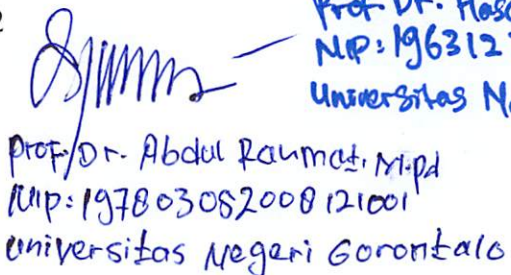 Prof. Dr. Hasa
NIP: 1963127
Universitas N
Prof. Dr. Abdul Rahmat, M.pd
NIP: 197803052008121001
Universitas Negeri Gorontalo